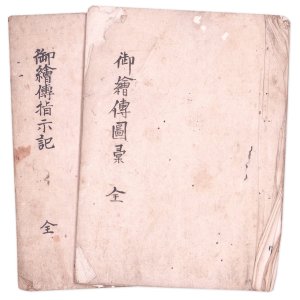 御繪傳圖彙 全
御繪傳指示記 全